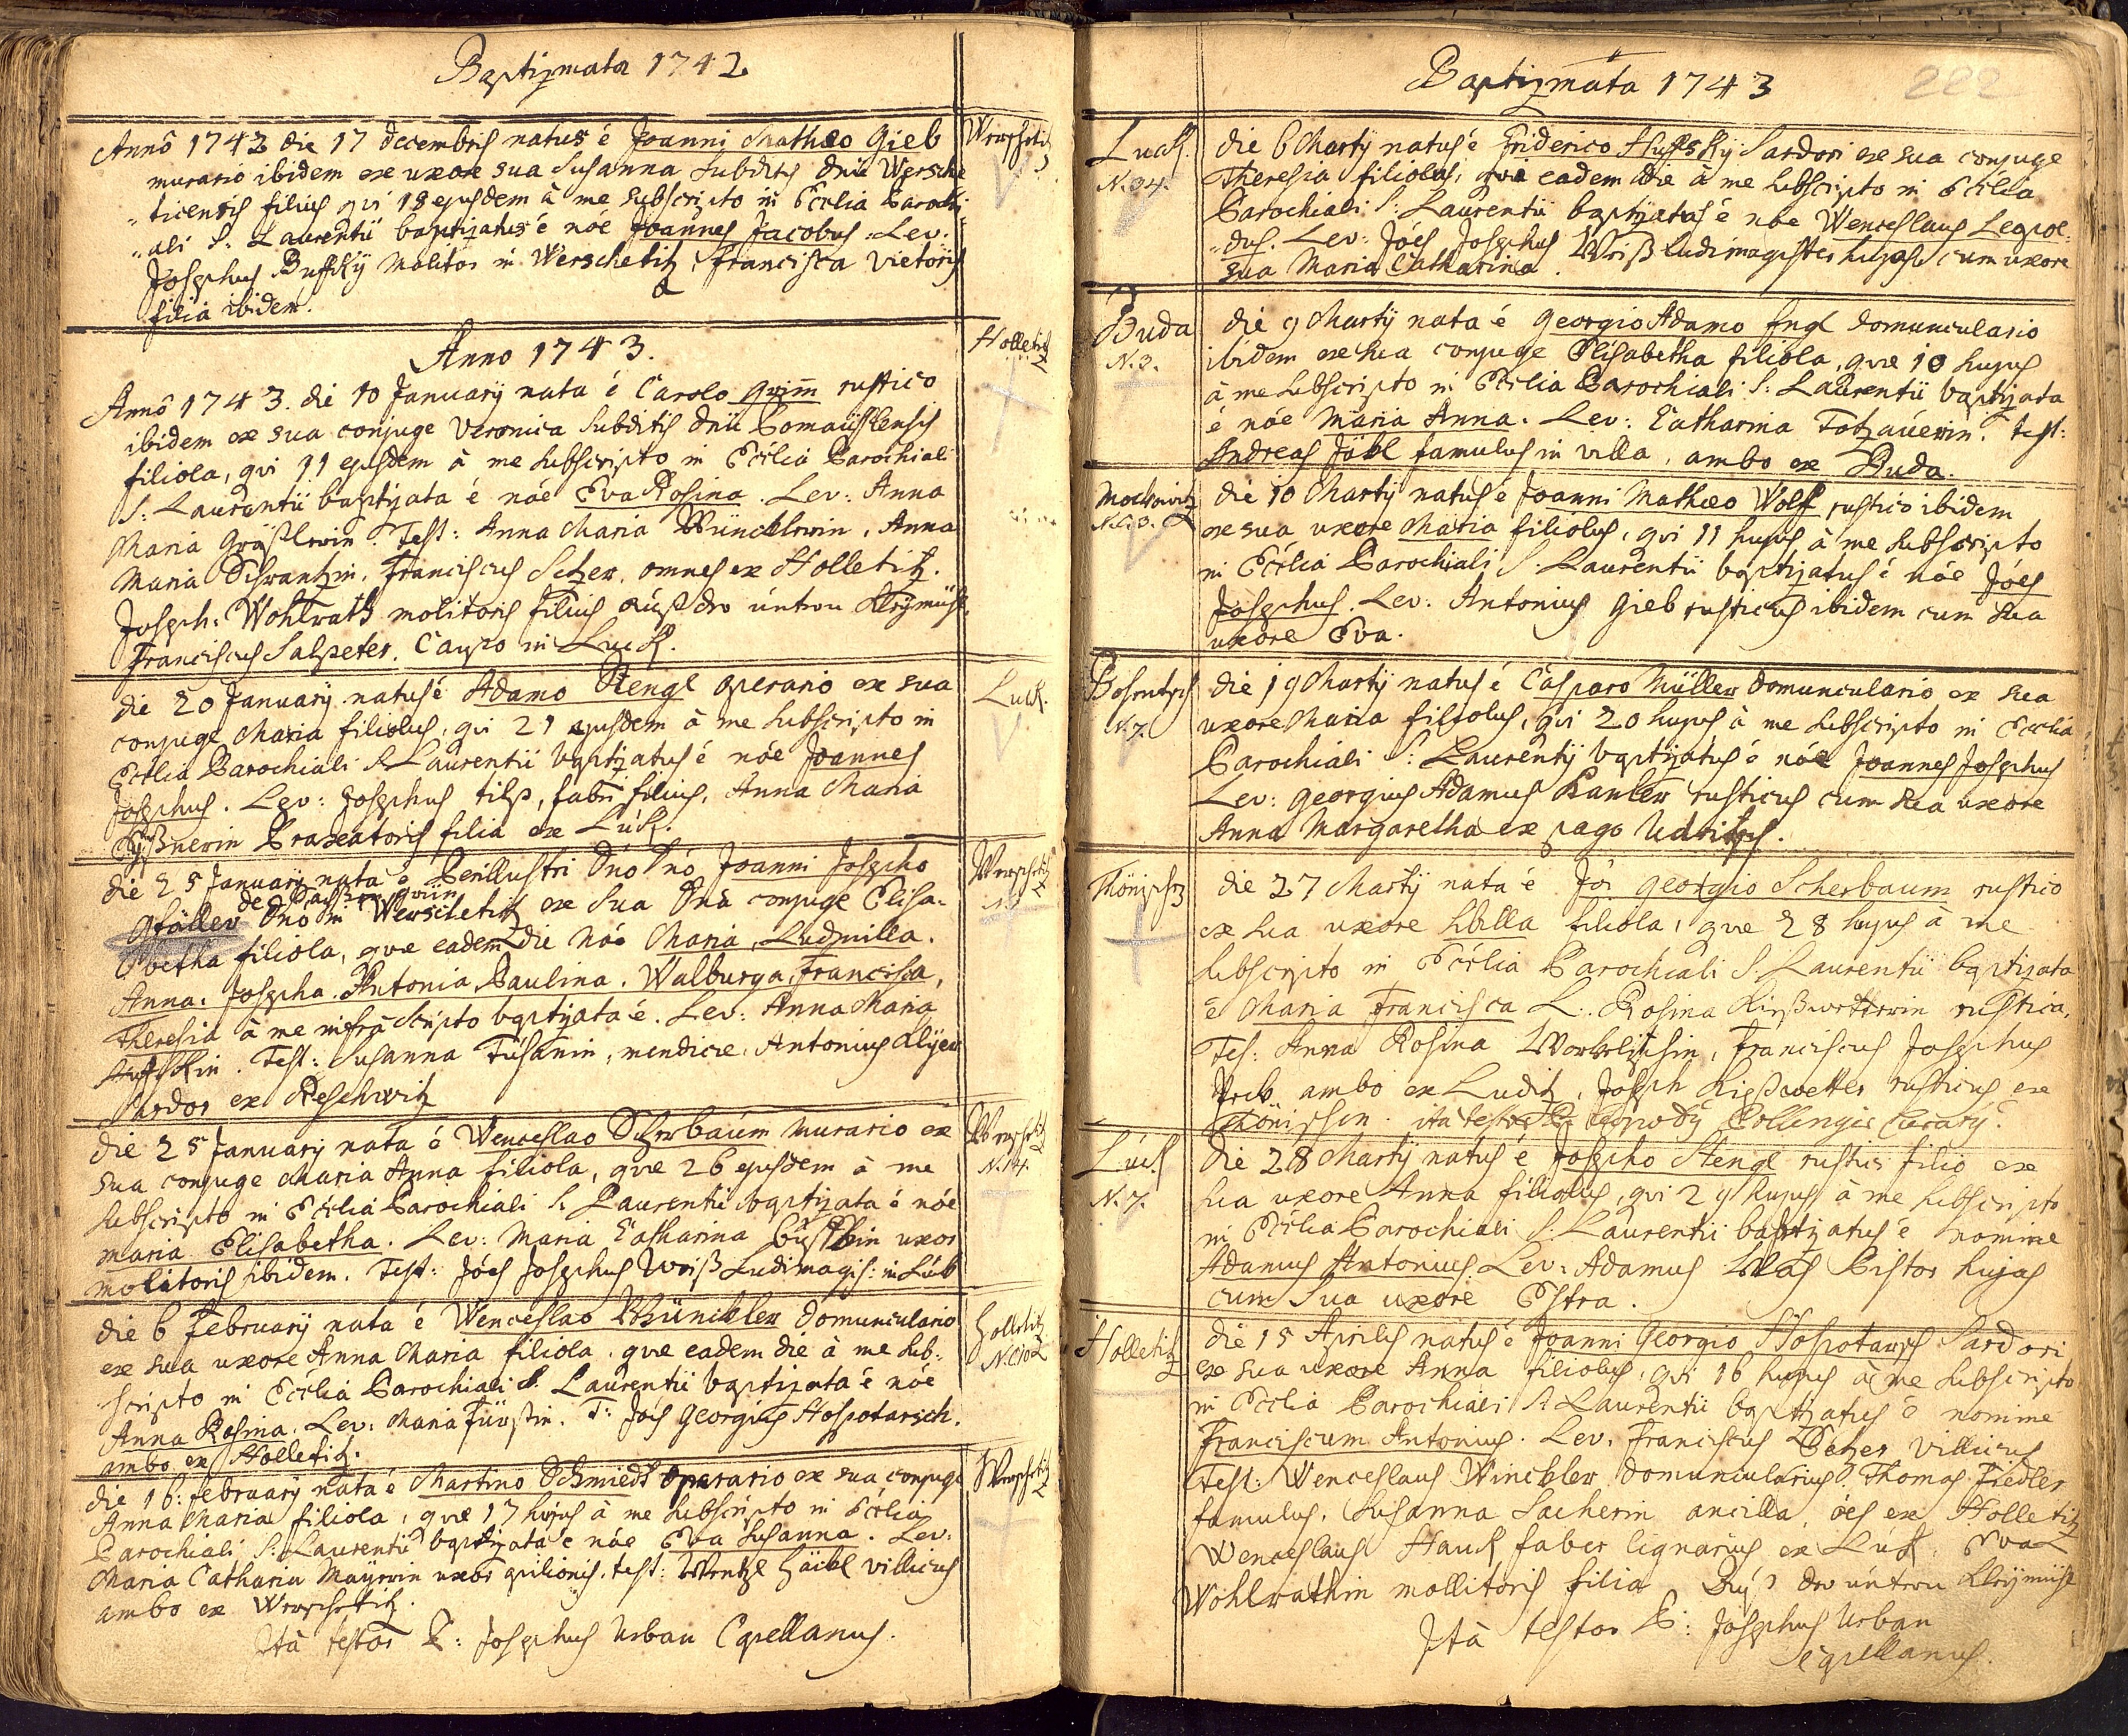 Baptizmata 1742
Annô 1742 die 17 decembris natus é Joanni Mathæo Gieb
Werschetitz
murario ibidem ex uxore sua Susanna subditis dnii Wersche
"ticensis filius qvi 18 ejusdem à me subscripto in Ecclia Parochi
"ali S: Laurentii baptizatus é nóe Joannes Jacobus. Lev:
Josephus Buffky Molitor in Werschetitz, Francisca Vietoris
filia ibidem.
Anno 1743.
Holletitz
Annô 1743. die 10 January nata é Carolo Grim̅ rustico
ibidem ex sua conjuge Veronica subditis dnii Comaÿslensis
filiola, qvi 11 ejusdem à me subscripto in Ecclia Parochiali
S: Laurentii baptizata é nóe Eva Rosina. Lev: Anna
Maria Test: Anna Maria Wüncklerin, Anna
Maria Schwantzin, Franciscus Setzer, omnes ex Holletitz.
Joseph: Wohlrath molitoris filius auß der untern Kleÿmühl.
Franciscus Salpeter, Caupo in Luck.
die 20 January natus é Adamo Stengl operario ex sua
Luck.
conjuge Maria filiolus, qvi 21 ejusdem à me subscripto in
Ecclia Parochiali S Laurentii baptizatus é nóe Joannes
Josephus. Lev: Josephus tilp, fabri filius, Anna Maria
Praxeatoris filia ex Luck.
die 25 January nata é Perillustri Dno Dnó Joanni Josepho
Werschetitz
de
Gfäller Dnó in Werschetitz ex sua Dná conjuge Elisa-
betha filiola, qvæ eadem die nóe Maria, Ludmilla.
Anna. Josepha. Antonia, Paulina. Walburga, Francisca,
Theresia à me infrà Scripto baptizata é. Lev: Anna Maria
Huffskin. Test: Susanna Fúsanin, mendicæ, Antonius
Sardor ex Reschwitz
die 25 January nata é Wenceslao Scherbaum murario ex
Werschetitz
N. 14.
sua conjuge Maria Anna filiola, qvæ 26 ejusdem à me
subscripto in Ecclia Parochiali S. Laurentii baptizata é nóe
Maria Elisabetha. Lev: Maria Catharina uxor
molitoris ibidem. Test: Jóes Josephus Weiß Ludimagis: in Luk
die 6 February nata é Wenceslao Wünckler domunculario
Holletitz
N. 10
ex sua uxore Anna Maria filiola. qvæ eadem die à me sub:
scripto in Ecclia Parochiali S. Laurentii baptizata é nóe
Anna Rosina. Lev: Maria Fürstin. T: Joës Georgius Hospotarsch.
ambo ex Holletitz.
die 16: February nata é Martino Schmiedt operario ex sua conjuge
Werschetitz
Anna Maria filiola, qvæ 17 hujus à me subscripto in Ecclia
Parochiali S: Laurentii baptizata é nóe Eva Susanna. Lev:
Maria Catharin Maÿerin uxor opilionis, test: Wentzl Häckl villicus
ambo ex Werschetitz.
Ità testor P: Josephus Urban Capellanus.
Baptizmata 1743
222
Luck.
N. 34.
die 6 Marty natus é Friderico Huffsky Sardori ex sua conjuge
Theresia filiolus, qvi eadem die à me subscripto in Ecclia
Parochiali S: Laurentii baptizatus é nóe Wenceslaus Leopol:
"dus. Lev: Jóes Josephus Weiß Ludimagister hujas cum uxore
sua Maria Catharina.
Buda
N. 3.
die 9 Martÿ nata é Georgio Adamo Engl domunculario
ibidem ex sua conjuge Elisabetha filiola, qvæ 10 hujus
à me subscripto in Ecclia Parochiali S: Laurentii baptizata
é nóe Maria Anna. Lev: Catharina Totzauerin. test:
Andreas Jäkl famulus in villa, ambo ex Buda.
Mockowitz
N. 3.
die 10 Martÿ natus é Joanni Mathæo Wolf rustico ibidem
ex sua uxore Maria filiolus, qvi 11 hujus à me subscripto
in Ecclia Parochiali S: Laurentii baptizatus é nóe Jóes
Josephus. Lev: Antonius Gieb rusticus ibidem cum sua
uxore Eva.
N. 7.
die 19 Martÿ natus é Casparo Müller domunculario ex sua
uxore Maria filiolus, qvi 20 hujus à me subscripto in Ecclia
Parochiali S: Laurentÿ baptizatus é nóe Joannes Josephus
Lev: Georgius Adamus Kanler rusticus cum sua uxore
Anna Margaretha ex pago Udritsch.
die 27 Martÿ nata é Jói Georgio Scherbaum rustico
ex sua uxore Sbilla filiola, qvæ 28 hujus à me
subscripto in Ecclia Parochiali S. Laurentii baptizata
é Maria Francisca L: Rosina Kießwetterin rustica,
Tes: Anna Rosina Franciscus Josephus
ambo ex Luditz, Joseph Kießwetter rusticus ex
Thönischen. ità testor
Luck
N. 7.
die 28 Martÿ natus é Josepho Stengl rustici filio ex
sua uxore Anna filiolus, qvi 29 hujus à me subscripto
in Ecclia Parochiali S: Laurentii baptizatus é nomine
Adamus Antonius. Lev: Adamus Pistor hujas
cum sua uxore Estra.
Holletitz
die 15 Aprilis natus é Joanni Georgio Hospotarsch Sardori
ex sua uxore Anna filiolus, qvi 16 hujus à me subscripto
in Ecclia Parochiali S Laurentii baptizatus é nomine
Franciscum Antonius. Lev. Franciscus Setzer Villicus
Test: Wenceslaus Winckler domuncularius. Thomas Fiedler
famulus, Susanna Sacherin ancilla, óes ex Holletitz
Wenceslaus Hauk faber lignarius ex Luk. Eva
Wohlrathin mollitoris filia der untern Kleÿmühl
Ità testor P: Josephus Urban
Capellanus.